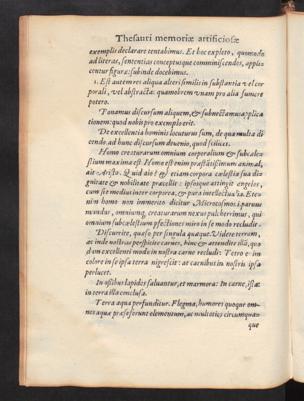 Thesauri memoriæ artificiosæ
exemplis declarare tentabimus. Et hoc expleto, quomodo
ad literas, sententias conceptusque comminiscendos, applicentur figuræ: subinde docebimus.
1. Est autem res aliqua alteri similis in substantia vel corporali, vel abstracta: quamobrem vnam pro alia sumere
potero.
Ponamus discursum aliquem, & subnectamus applicationem: quod nobis pro exemplo erit.
De excellentia hominis locuturus sum, de qua multa dicendo, ad hunc discursum deuenio, quod scilicet.
Homo creaturarum omnium corporalium & subcælestium maxima est. Homo est enim præstãtissimum animal,
ait Aristo. Quid aio? & etiam corpora cælestia sua dignitate & nobilitate præcellit: ipsosque attingit angelos,
cum sit medius inter corporea, & pura intellectualia. Etenim homo non immerito dicitur Microcosmos i. paruus
mundus, omniumq; creaturarum nexus pulcherrimus, qui
omnium subcælestium pfectiones miro in se modo recludit.
Discurrite, quæso per singula quæque. Videte terram,
ac inde nostras perspicite carnes, hinc & attendite illã, quodam excellenti modo in nostra carne recludi: Tetro enim
colore in se ipsa terra nigrescit: at carnibus in nostris ipsa
perlucet.
In ossibus lapides saluantur, et marmora: In carne, istæc
in terra illa conclusa.
Terra aqua perfunditur. Flegma, humores quoque omnes aqua præseferunt elementum, ac multoties circumquaque